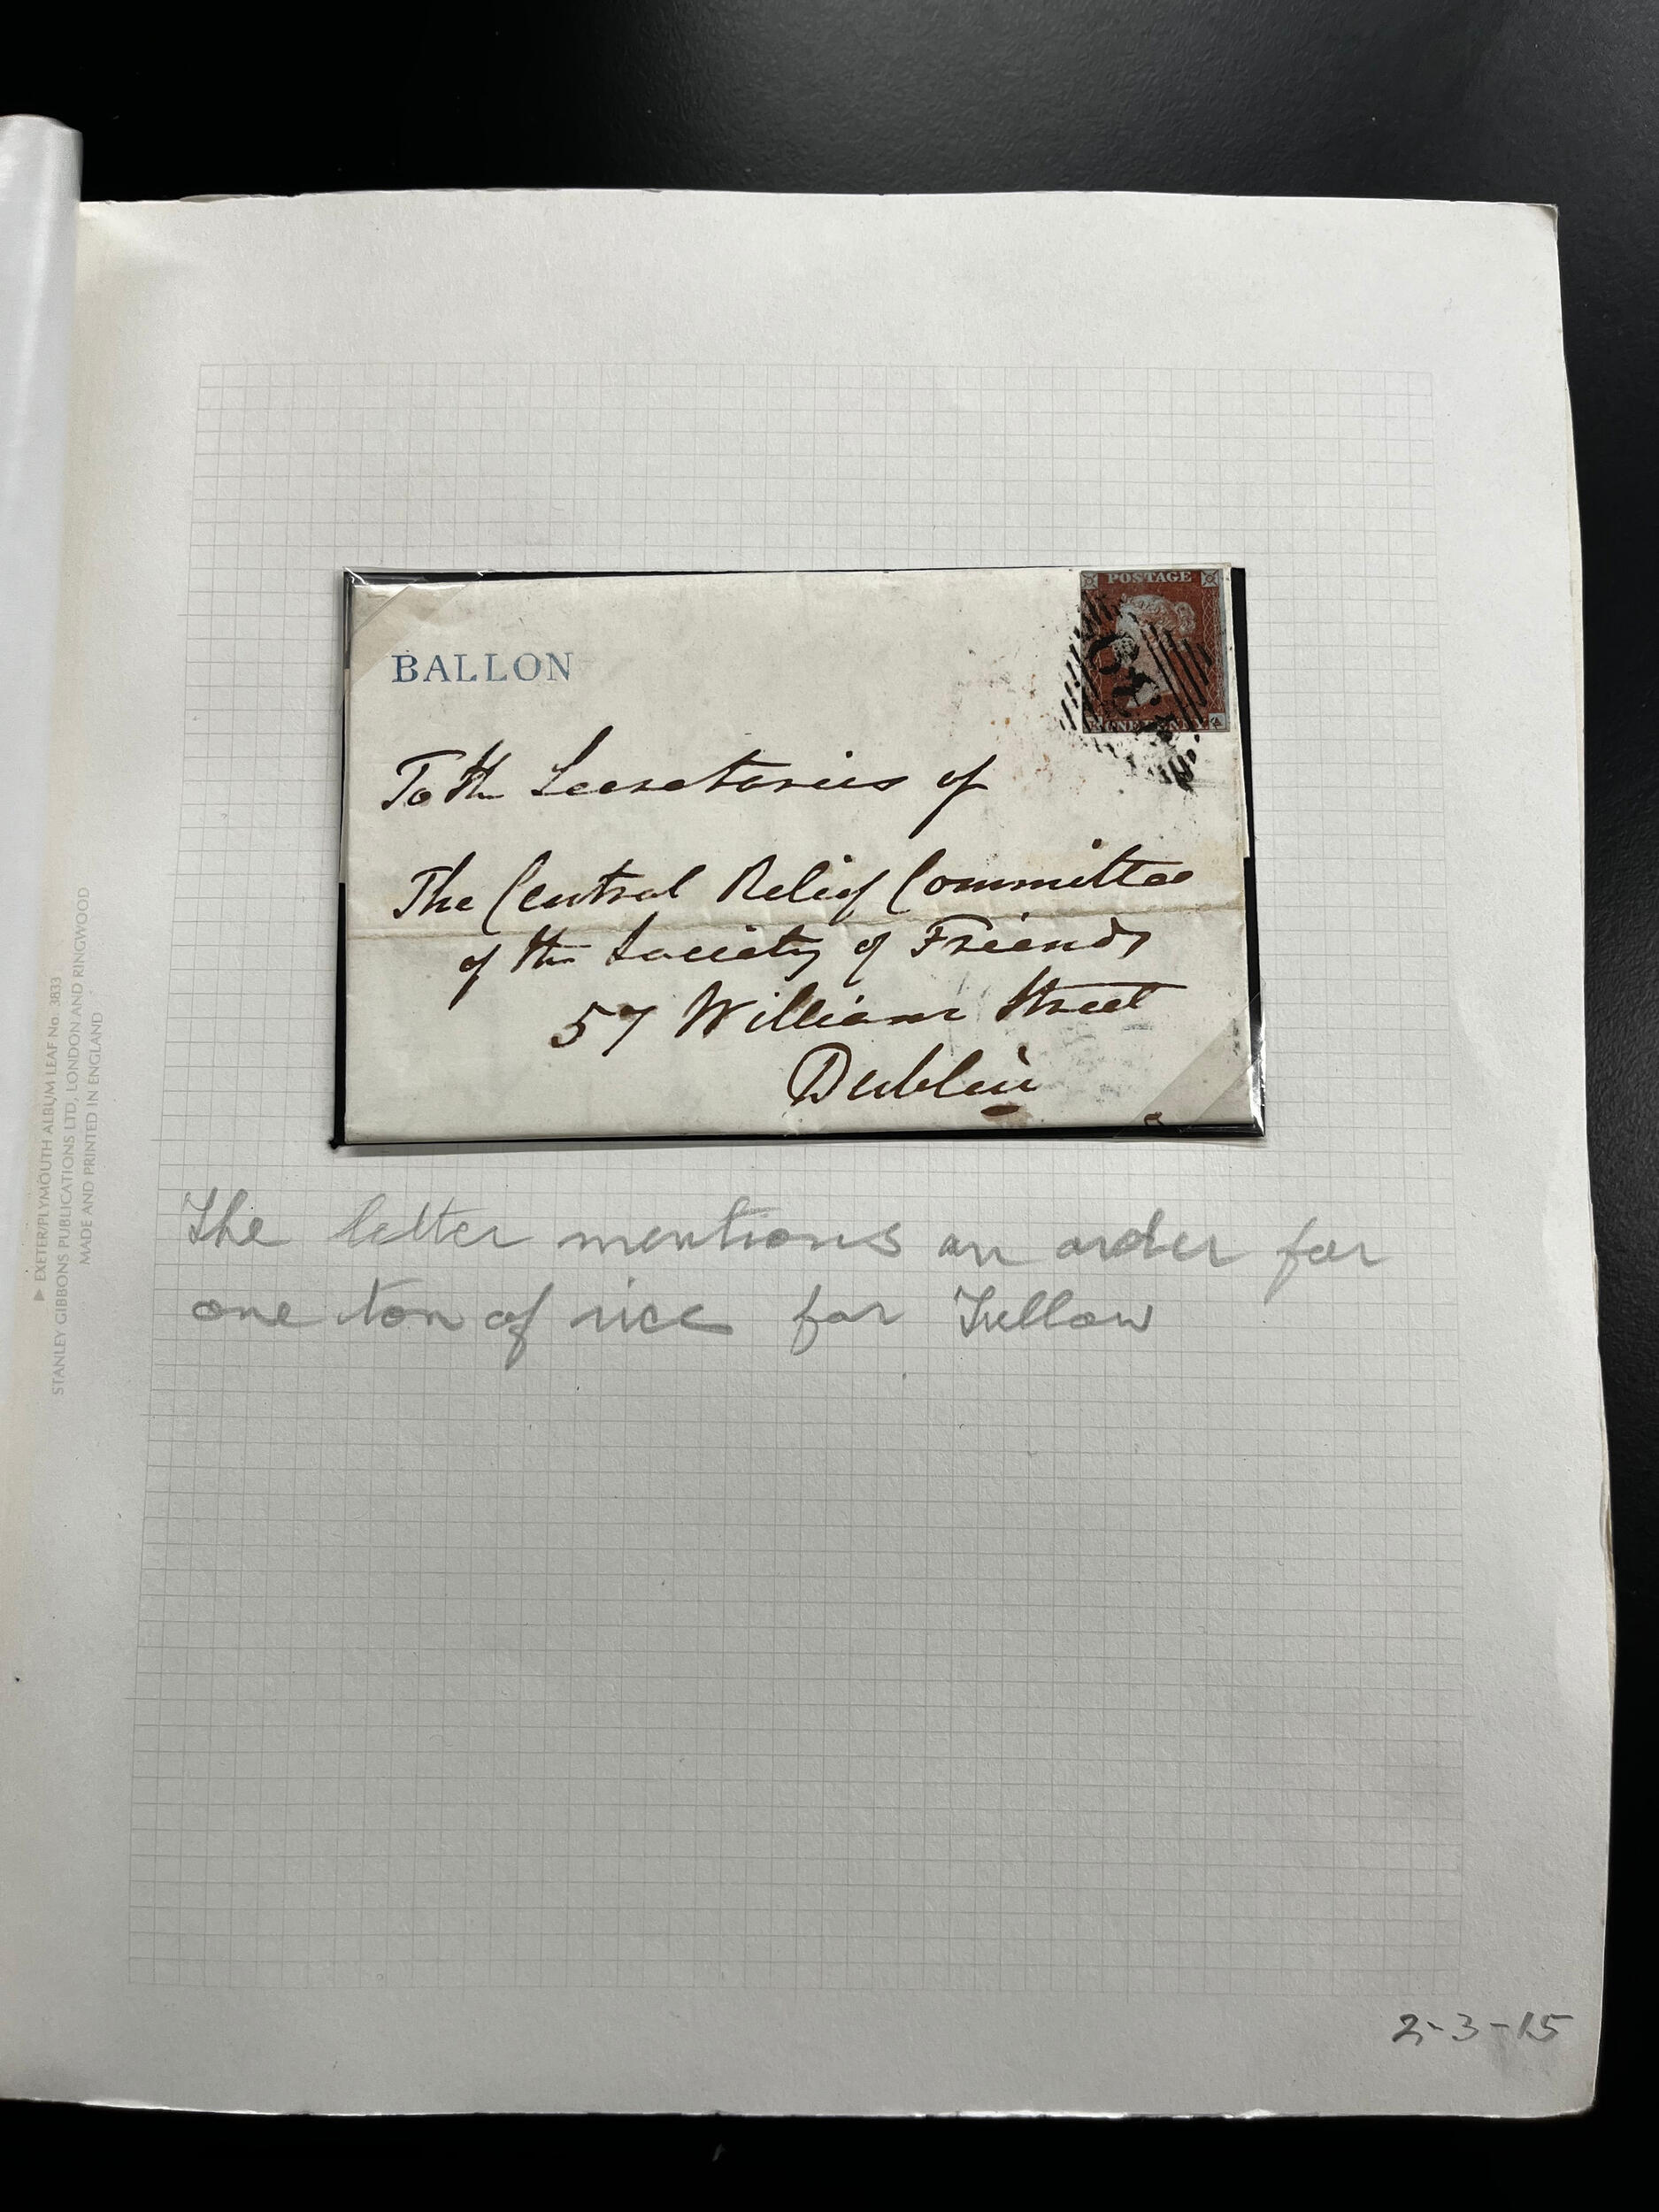 POSTAGE
BALLON
To the Secretaries of
The Central Relief Committee
of the Society of Friends
57 William Street
Dublin
The letter mentions an order for
one ton of rice for Tullow
▶ EXETER/PLYMOUTH ALBUM LEAF No. 3833
STANLEY GIBBONS PUBLICATIONS LTD, LONDON AND RINGWOOD
MADE AND PRINTED IN ENGLAND
2-3-15